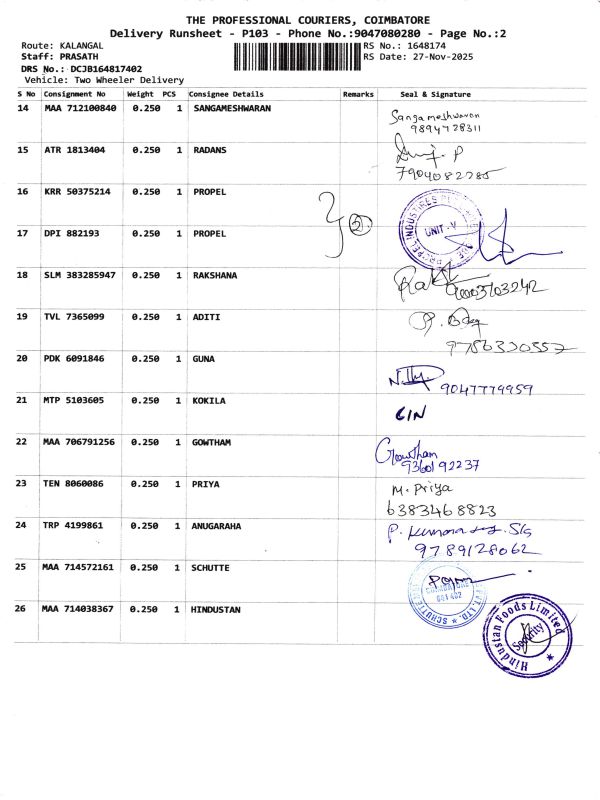 THE PROFESSIONAL COURIERS, COIMBATORE
Delivery Runsheet - P103 - Phone No.:9047080280 - Page No.:2
Route: KALANGAL RS No.: 1648174
Staff: PRASATH RS Date: 27-Nov-2025
DRS No.: DCJB164817402
Vehicle: Two Wheeler Delivery
S No Consignment No Weight PCS Consignee Details Remarks Seal & Signature
14 MAA 712100840 0.250 1 SANGAMESHWARAN Sangameshwaran
9894728311
15 ATR 1813404 0.250 1 RADANS
7904082285
16 KRR 50375214 0.250 1 PROPEL
17 DPI 882193 0.250 1 PROPEL 2 UNIT - V
18 SLM 383285947 0.250 1 RAKSHANA
19 TVL 7365099 0.250 1 ADITI
9786330557
20 PDK 6091846 0.250 1 GUNA
9047779959
21 MTP 5103605 0.250 1 KOKILA
22 MAA 706791256 0.250 1 GOWTHAM Gowtham
9360192237
23 TEN 8060086 0.250 1 PRIYA M. Priya
6383468823
24 TRP 4199861 0.250 1 ANUGARAHA
9789128062
25 MAA 714572161 0.250 1 SCHUTTE
26 MAA 714038367 0.250 1 HINDUSTAN Hindustan Foods Limited
Security